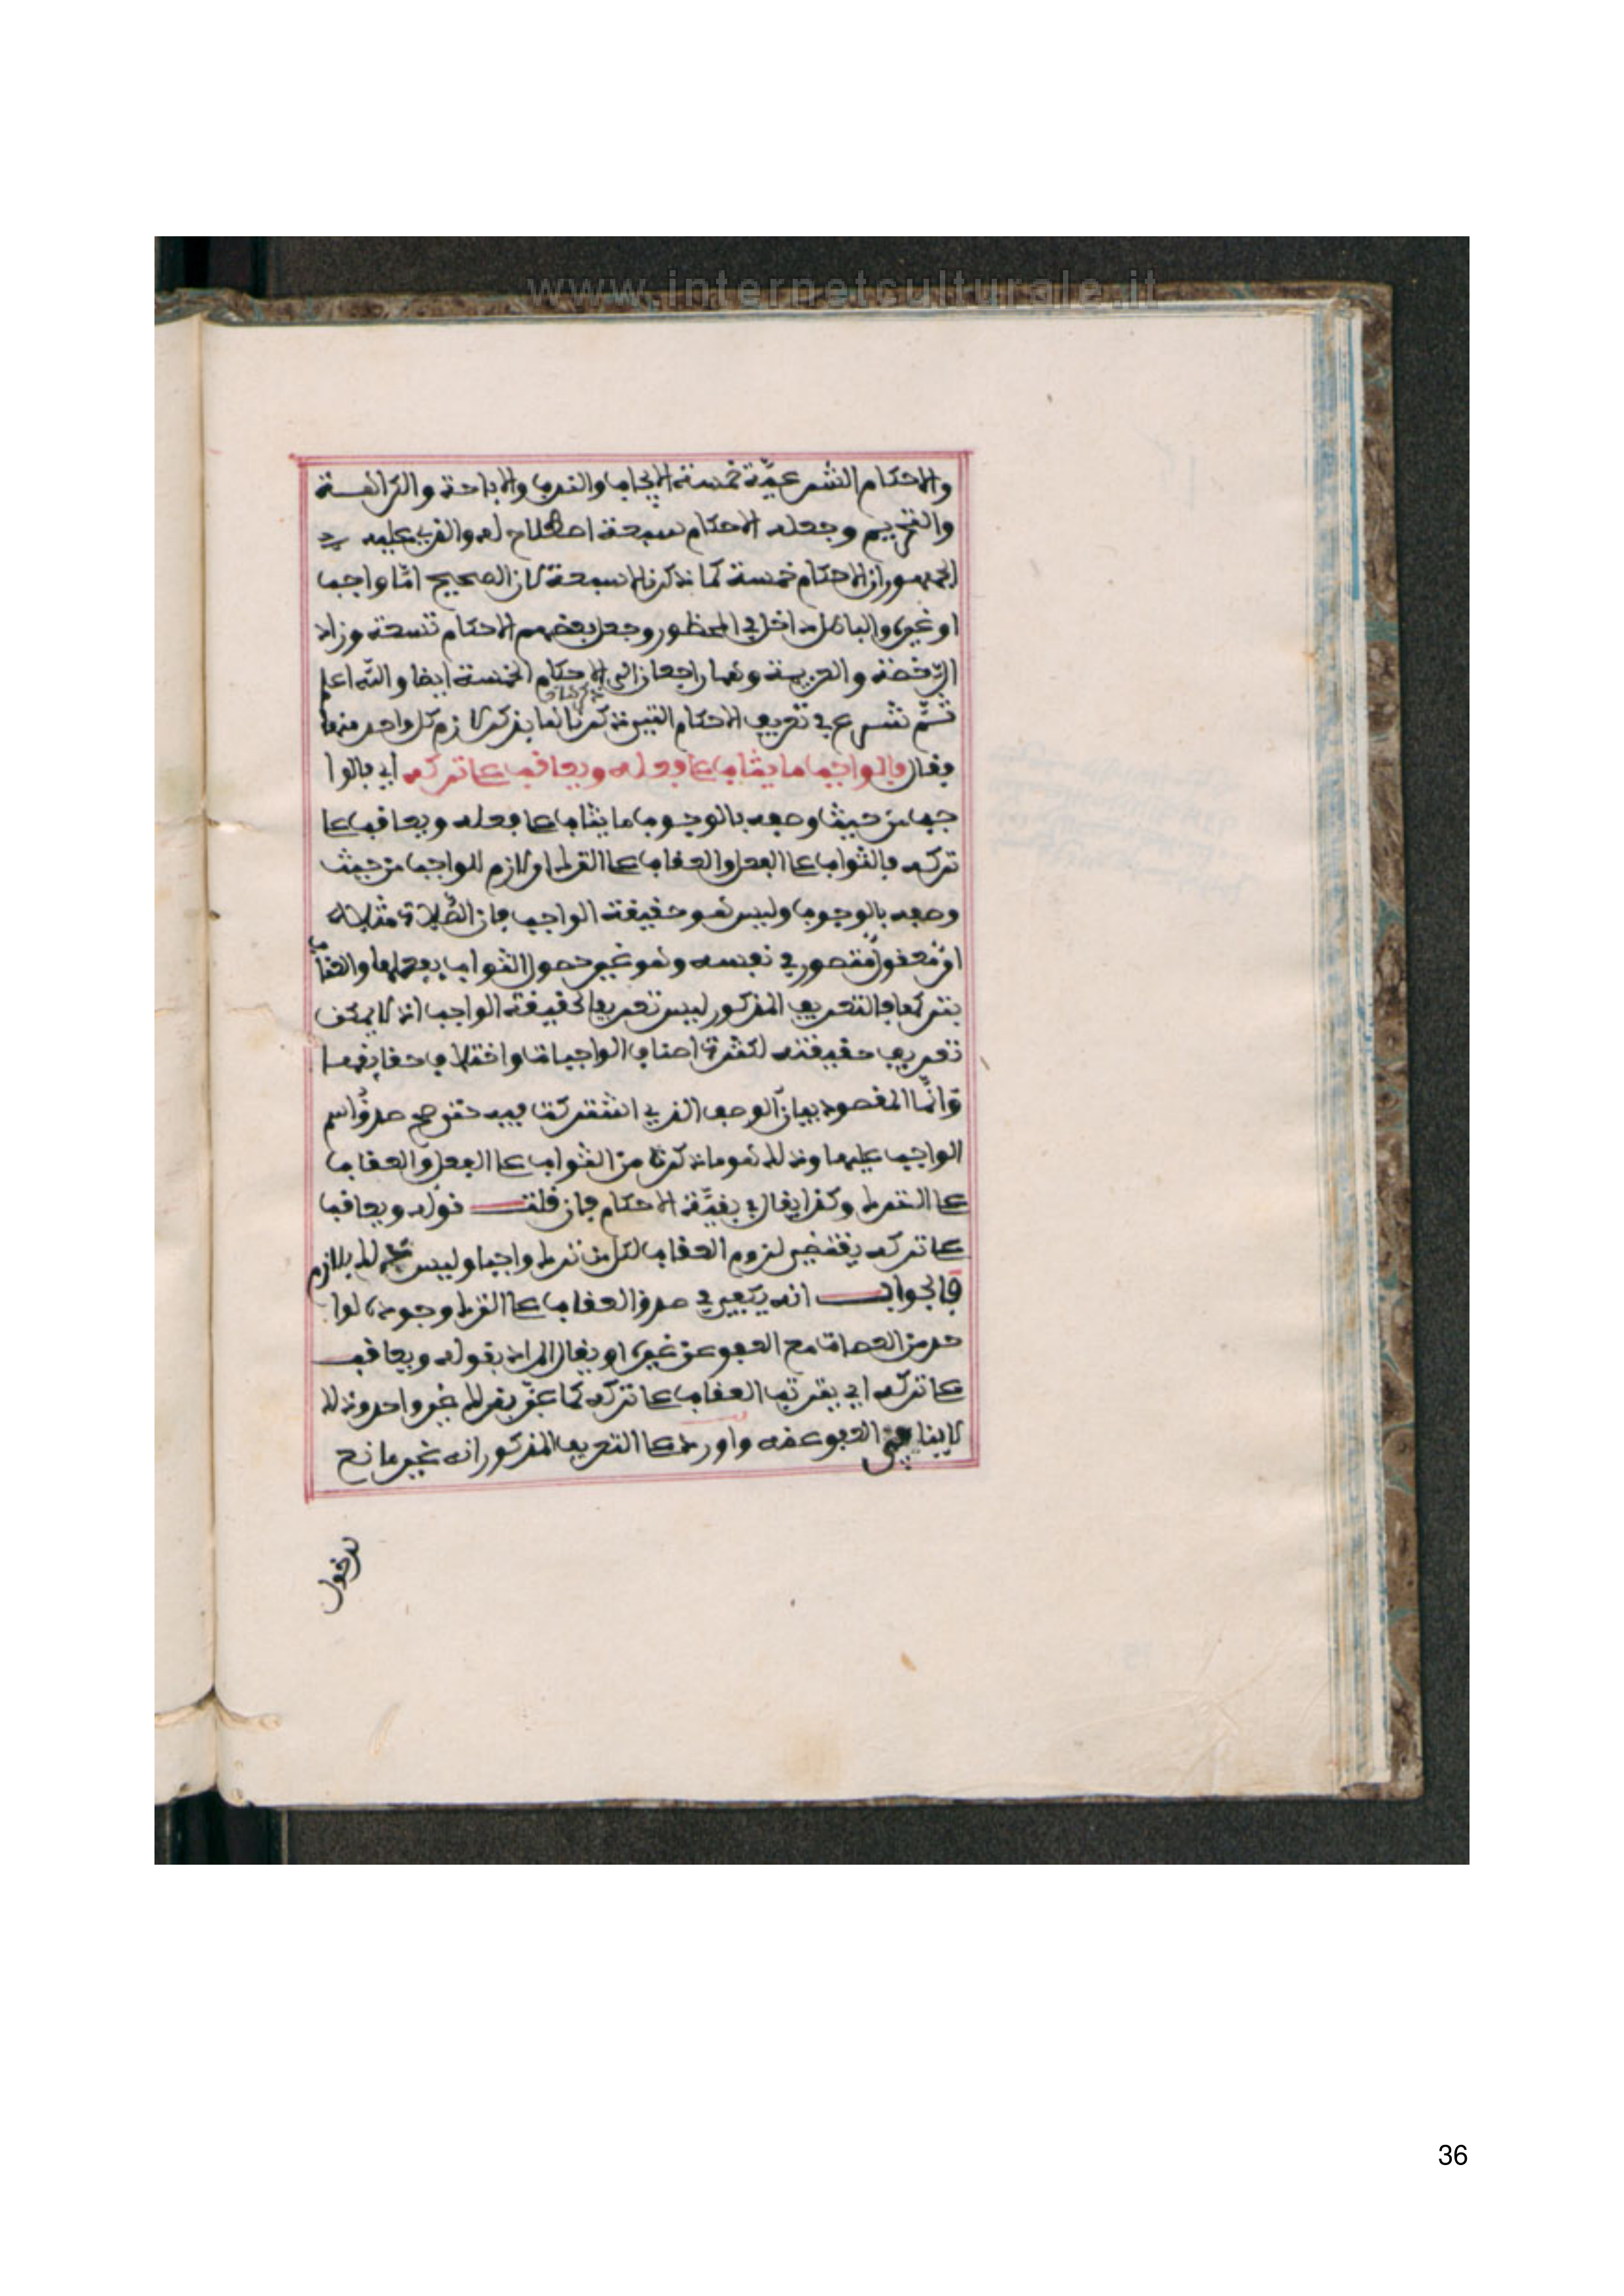 www.internetculturale.it
والاحكام الشرعيّة خمسة الايجاب والندب والاباحة والكراهة
والتحريم وجعله الاحكام سبعة اصطلاح له والذي عليه
الجمهور ان الاحكام خمسة كما ذكرنا لا سبعة لان الصحيح امّا واجب
او غيره والباطل داخل في المحظور وجعل بعضهم الاحكام تسعة وزاد
الرّخصة والعزيمة وهما راجعان الى الاحكام الخمسة ايضا والله اعلم
ثمّ شرع في تعريف الاحكام التي ذكرناها بذكر لازم كل واحد منها
فقال فالواجب ما يثاب على فعله ويعاقب على تركه اي فالوا
جب من حيث وصفه بالوجوب ما يثاب على فعله ويعاقب على
تركه فالثواب على الفعل والعقاب على الترك او لازم للواجب من حيث
وصفه بالوجوب وليس هو حقيقة الواجب فان الصّلاة مثلا له
امر معقول متصور في نفسه وهو غير حصول الثواب بفعلها والعقاب
بتركها فالتعريف المذكور ليس تعريفا لحقيقة الواجب اذ لا يمكن
تعريف حقيقته لكثرة اصناف الواجبات واختلاف حقايقها
وانّما المقصود بيان الوصف الذي اشتركت فيه حتى صح صدق اسم
الواجب عليها وذلك هو ما ذكره من الثواب على الفعل والعقاب
على الترك وكذا يقال في بقيّة الاحكام فان قلت قوله ويعاقب
على تركه يقتضي لزوم العقاب لكل من ترك واجبا وليس ذلك بلازم
فالجواب انه يكفي في صدق العقاب على الترك وجوده لوا
حد من العصاة مع العفو عن غيره او يقال المراد بقوله ويعاقب
على تركه اي يترتب العقاب على تركه كما عبّر بذلك غير واحد وذلك
لا ينافي العفو عنه واورد على التعريف المذكور انه غير مانع
لدخول
36